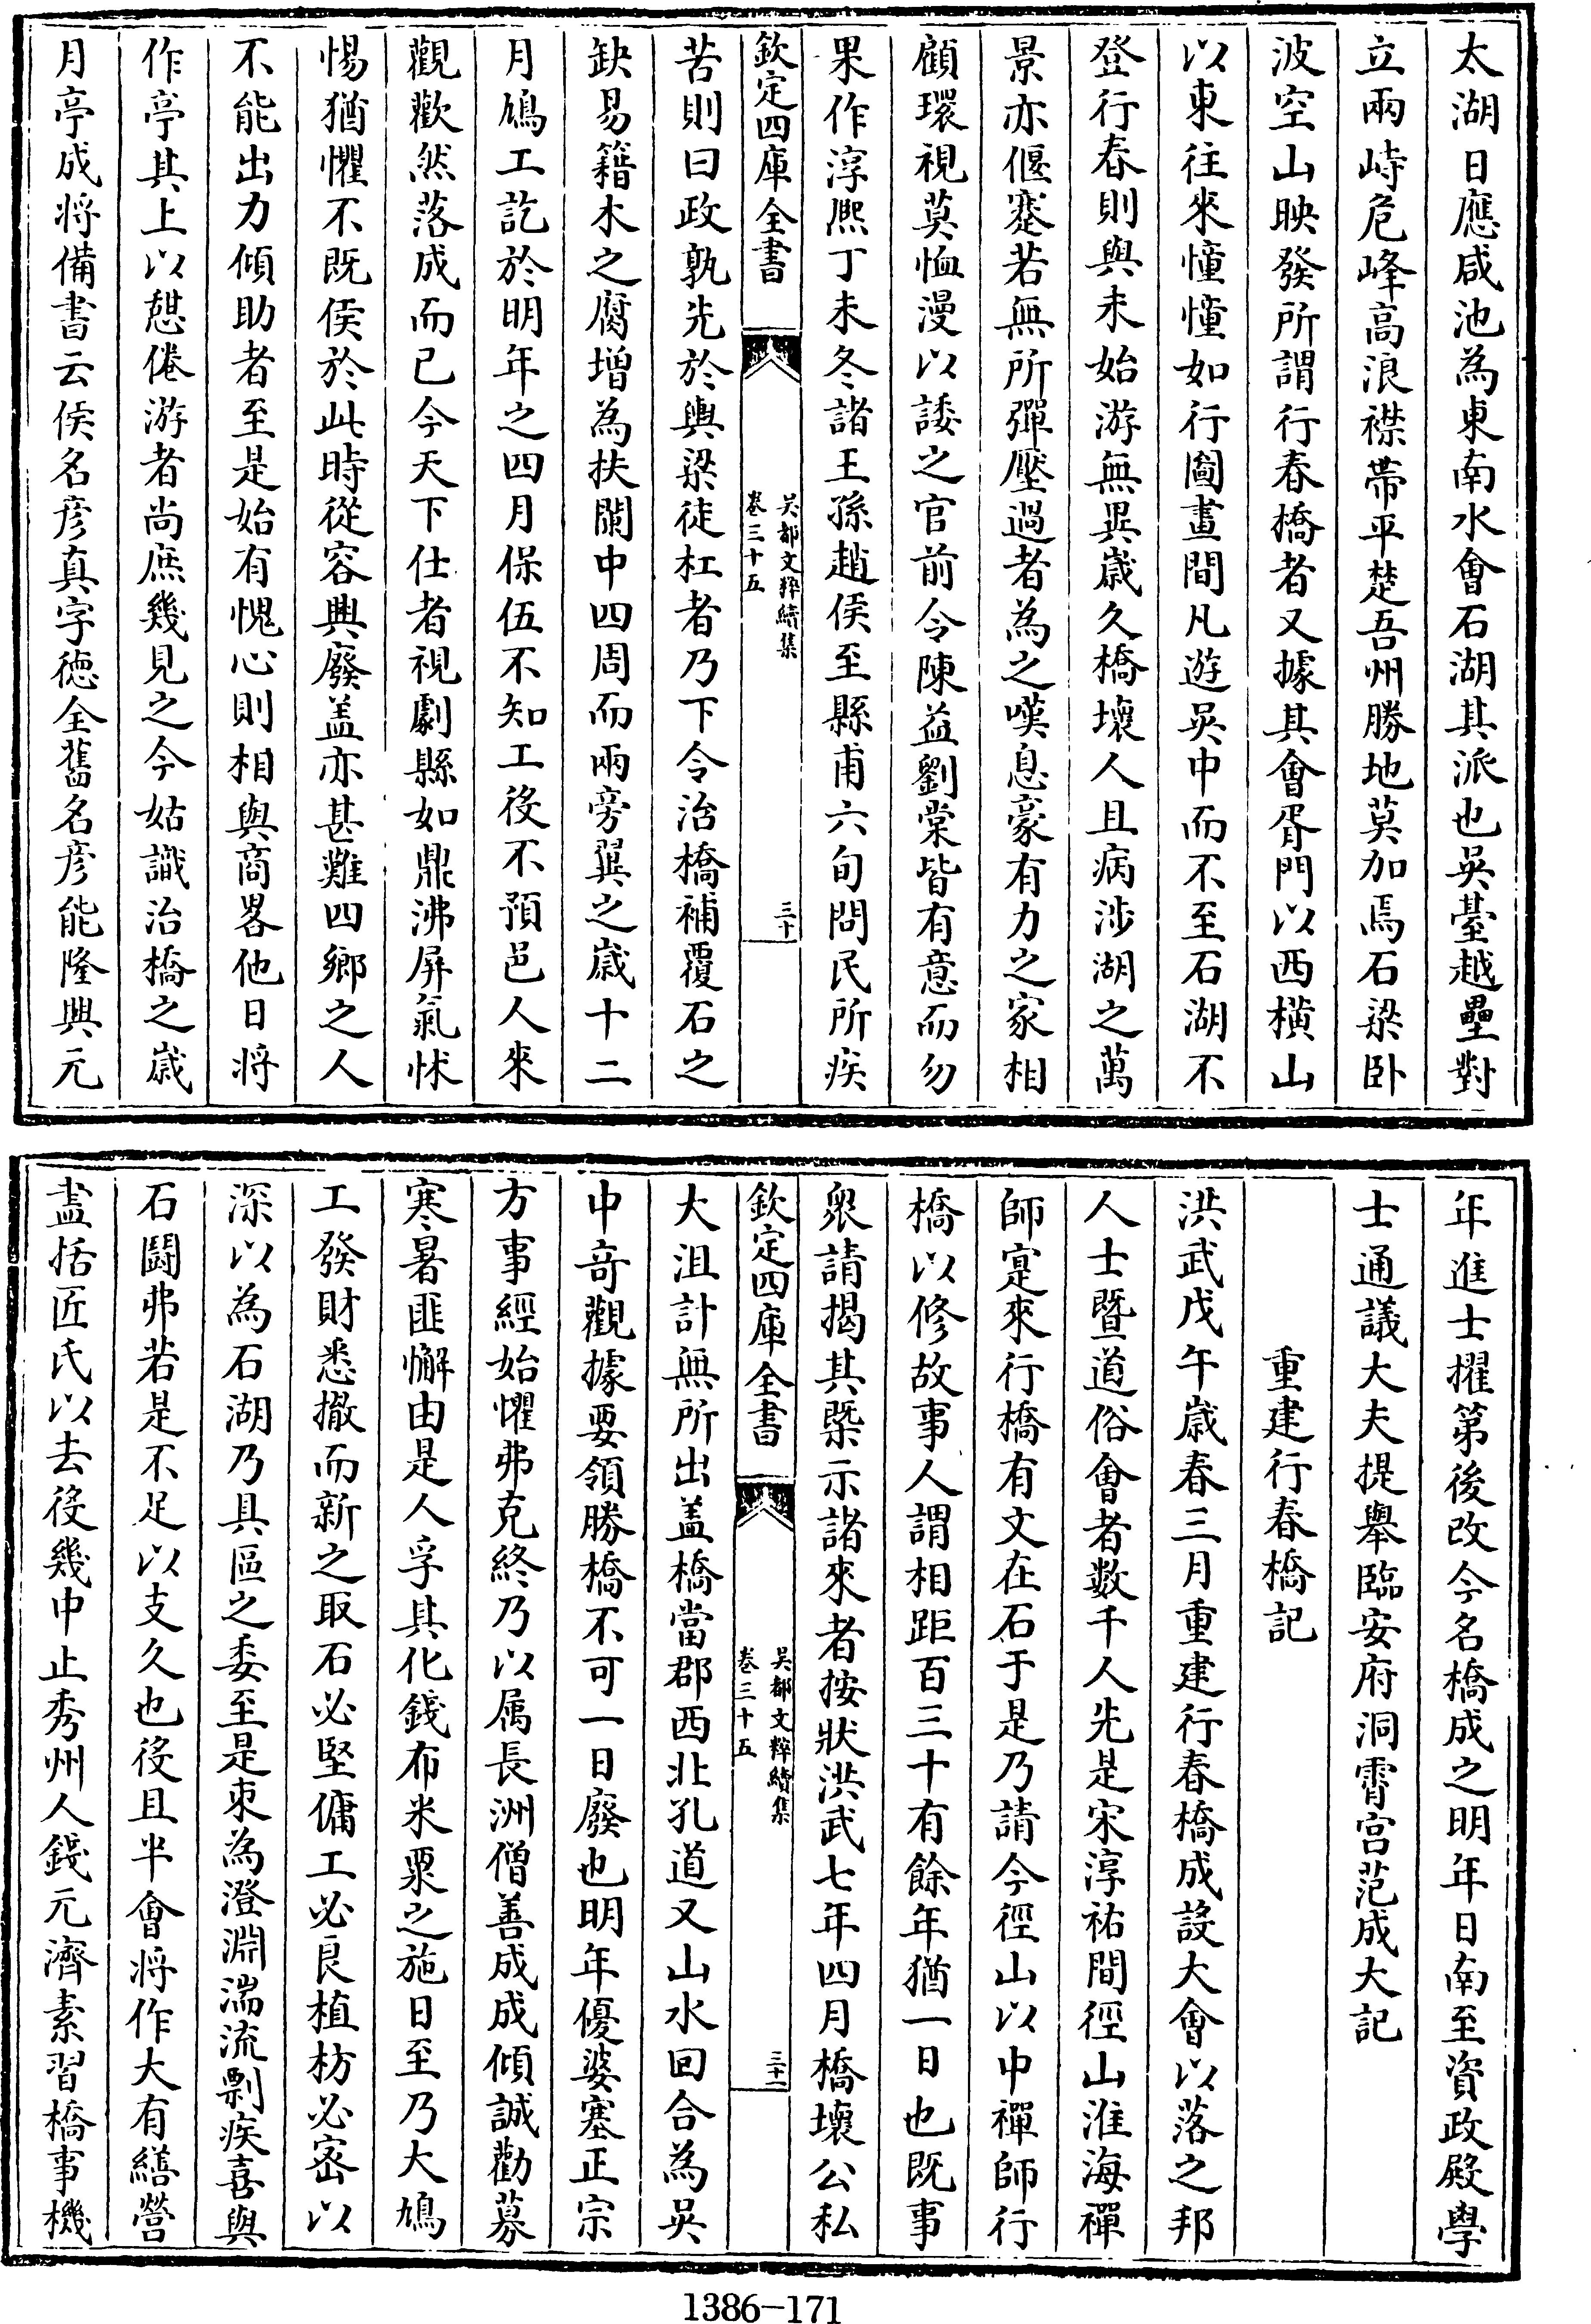 太湖日應咸池為東南水會石湖其派也吳臺越壘對
立兩峙危峰高浪襟帶平楚吾州勝地莫加焉石梁卧
波空山映發所謂行春橋者又據其會胥門以西橫山
以東往來憧憧如行圖畫間凡遊吳中而不至石湖不
登行春則與未始游無異歲久橋壞人且病涉湖之萬
景亦偃蹇若無所彈壓過者為之嘆息豪有力之家相
顧環視莫恤漫以諉之官前令陳益劉棠皆有意而勿
果作淳熙丁未冬諸王孫趙侯至縣甫六旬問民所疾
欽定四庫全書
吳都文粹續集
卷三十五
三十
苦則曰政孰先於輿梁徒杠者乃下令治橋補覆石之
缺易籍木之腐增為扶闌中四周而兩旁翼之歲十二
月鳩工訖於明年之四月保伍不知工役不預邑人來
觀歡然落成而已今天下仕者視劇縣如鼎沸屏氣怵
惕猶懼不既侯於此時從容興廢盖亦甚難四鄉之人
不能出力傾助者至是始有愧心則相與商畧他日將
作亭其上以憇倦游者尚庶幾見之今姑識治橋之歲
月亭成將備書云侯名彦真字徳全舊名彦能隆興元
年進士擢第後改今名橋成之明年日南至資政殿學
士通議大夫提舉臨安府洞霄宫范成大記
重建行春橋記
洪武戊午歲春三月重建行春橋成設大會以落之邦
人士暨道俗會者数千人先是宋淳祐間徑山淮海禪
師寔來行橋有文在石于是乃請今徑山以中禪師行
橋以修故事人謂相距百三十有餘年猶一日也既事
衆請揭其槩示諸來者按狀洪武七年四月橋壞公私
欽定四庫全書
吳都文粹續集
卷三十五
三十一
大沮計無所出盖橋當郡西北孔道又山水回合為吳
中竒觀據要領勝橋不可一日廢也明年優婆塞正宗
方事經始懼弗克終乃以属長洲僧善成成傾誠勸募
寒暑匪懈由是人孚其化錢布米粟之施日至乃大鳩
工發財悉撤而新之取石必堅傭工必良植枋必宻以
深以為石湖乃具區之委至是束為澄淵湍流剽疾喜與
石鬪弗若是不足以支久也役且半會將作大有繕營
盡括匠氏以去役幾中止秀州人錢元濟素習橋事機
1386-171